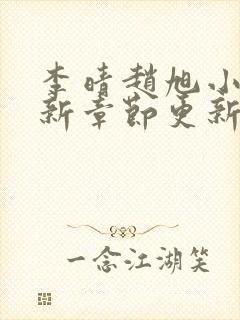 李晴趙旭小
新章節更新
一念江湖笑